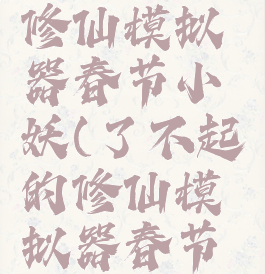 修仙模拟
器春节小
妖(了不起
的修仙模
拟器春节